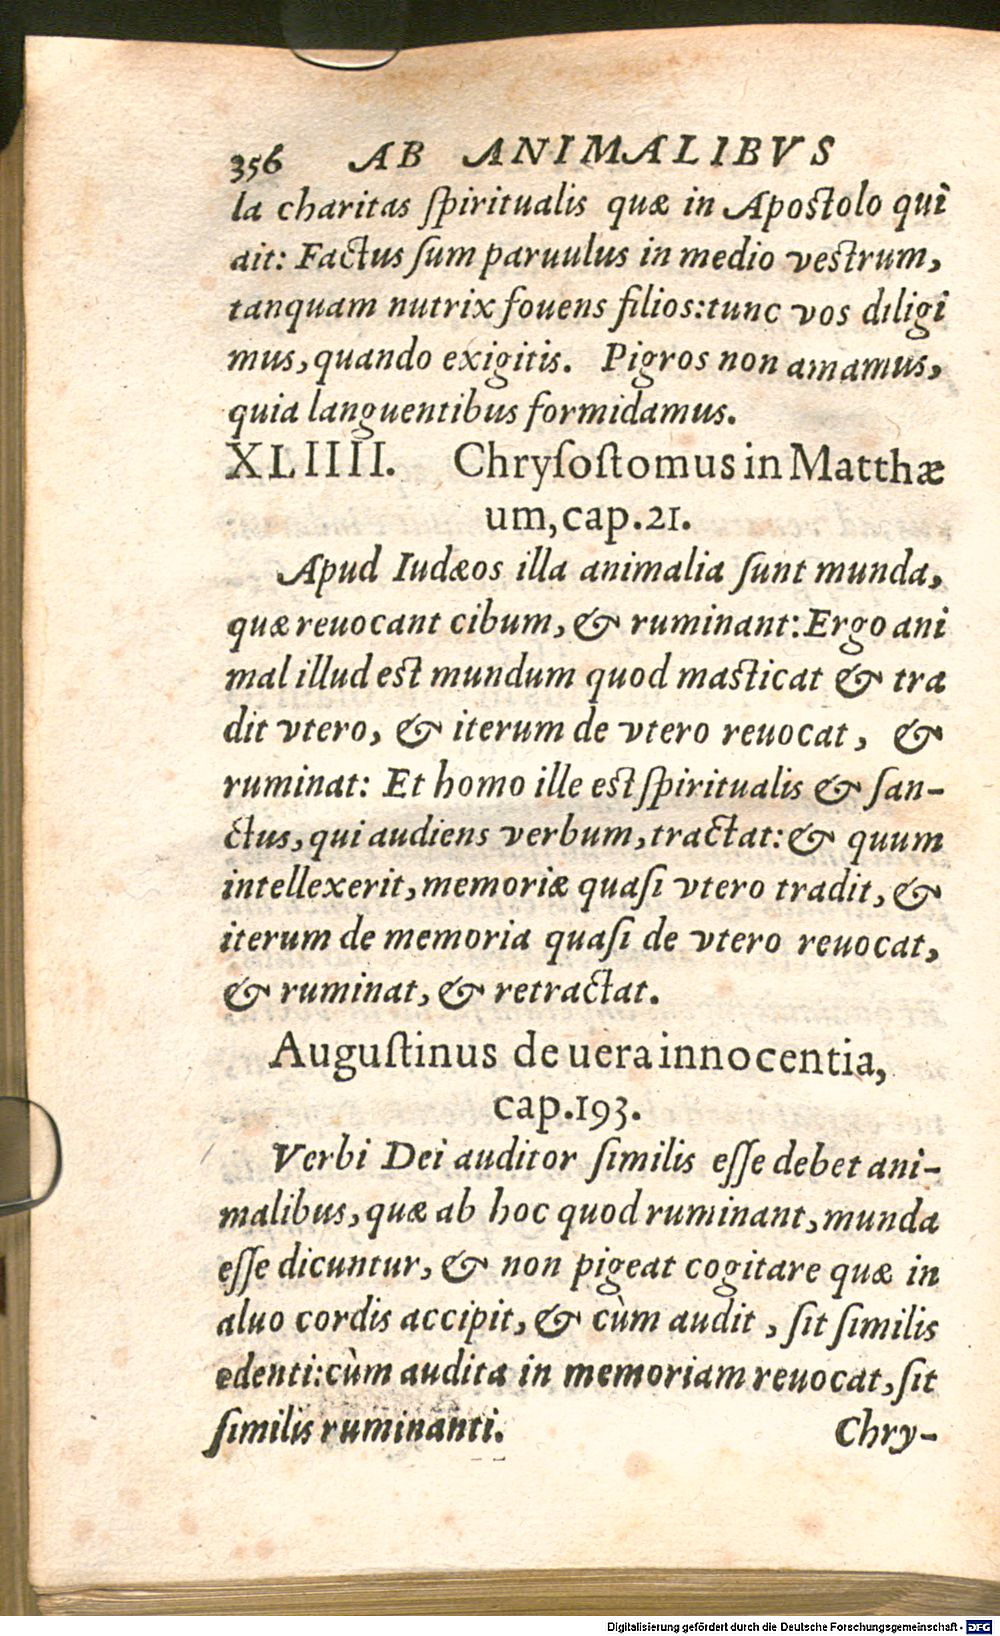 356 AB ANIMALIBVS
la charitas ſpiritualis quæ in Apostolo qui
ait: Factus ſum paruulus in medio vestrum,
tanquam nutrix fouens filios:tunc vos diligi
mus, quando exigitis. Pigros non amamus,
quia languentibus formidamus.
XLIIII. Chryſoſtomus in Matthæ
um, cap.21.
Apud Iudæos illa animalia ſunt munda,
quæ reuocant cibum, & ruminant: Ergo ani
mal illud est mundum quod masticat & tra
dit vtero, & iterum de vtero reuocat, &
ruminat: Et homo ille est ſpiritualis & ſan-
ctus, qui audiens verbum, tractat: & quum
intellexerit, memoriæ quaſi vtero tradit, &
iterum de memoria quaſi de vtero reuocat,
& ruminat, & retractat.
Auguſtinus de uera innocentia,
cap.193.
Verbi Dei auditor ſimilis eſſe debet ani-
malibus, quæ ab hoc quod ruminant, munda
eſſe dicuntur, & non pigeat cogitare quæ in
aluo cordis accipit, & cùm audit, ſit ſimilis
edenti: cùm audita in memoriam reuocat, ſit
ſimilis ruminanti. Chry-
Digitalisierung gefördert durch die Deutsche Forschungsgemeinschaft - DFG